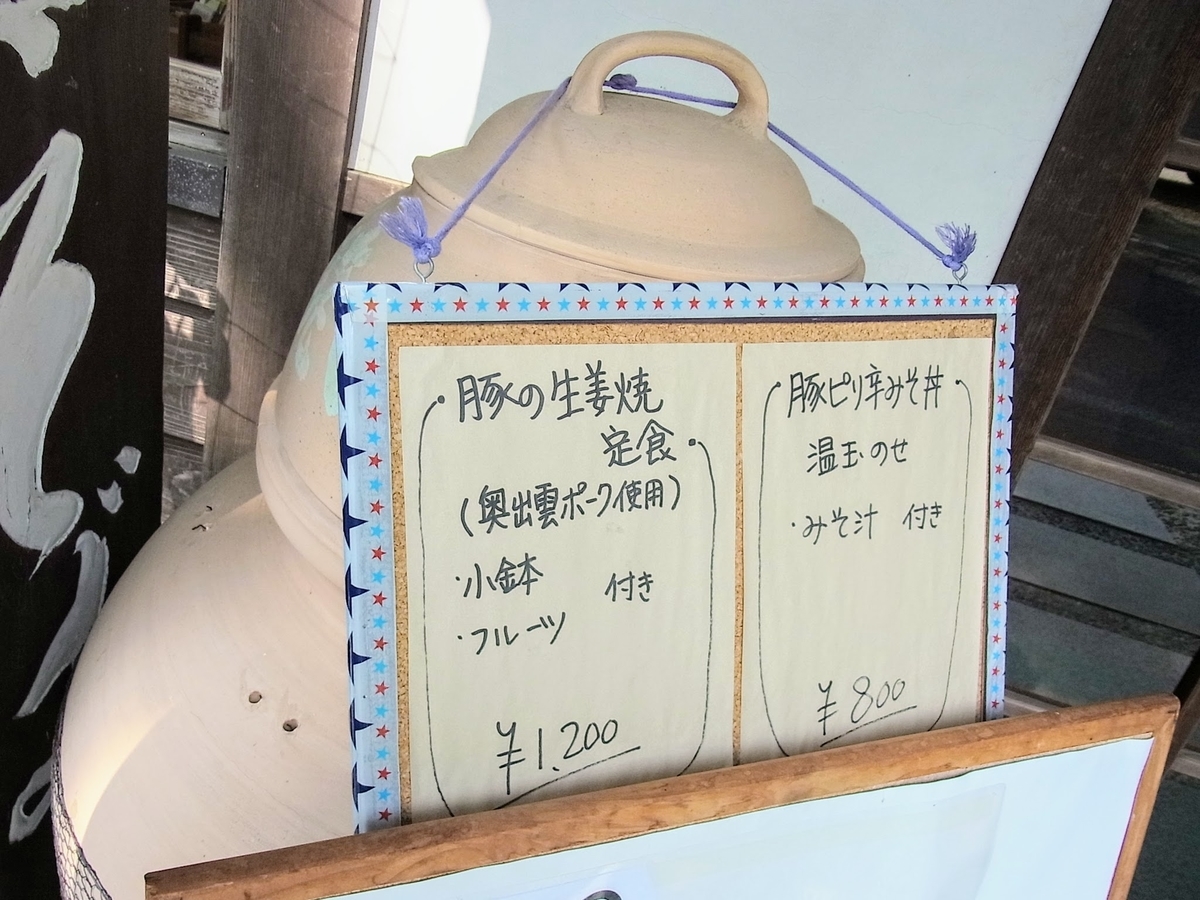 豚の生姜焼
定食
(奥出雲ポーク使用)
・小鉢 付き
・フルーツ
¥1,200
豚ピリ辛みそ丼
温玉のせ
・みそ汁 付き
¥800